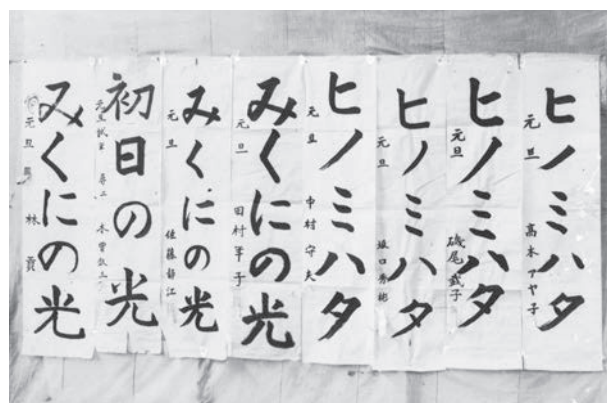 ヒノミハタ
元旦 高木アヤ子
ヒノミハタ
元旦 磯尾 子
ヒノミハタ
元旦 坂口秀
ヒノミハタ
元旦 中村守夫
みくにの光
元旦 田村 子
みくにの光
元旦 佐藤静江
初日の光
元旦試筆 尋二 木曽
みくにの光
元旦 林 貢